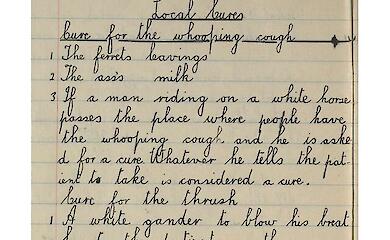 Local Cures
Cure for the whooping cough
1 The ferrets leavings
2 The ass's milk
3 If a man riding on a white horse
passes the place where people have
the whooping cough and he is aske
d for a cure Whatever he tells the pat-
ient to take is considered a cure.
Cure for the thrush
1 A white gander to blow his breat